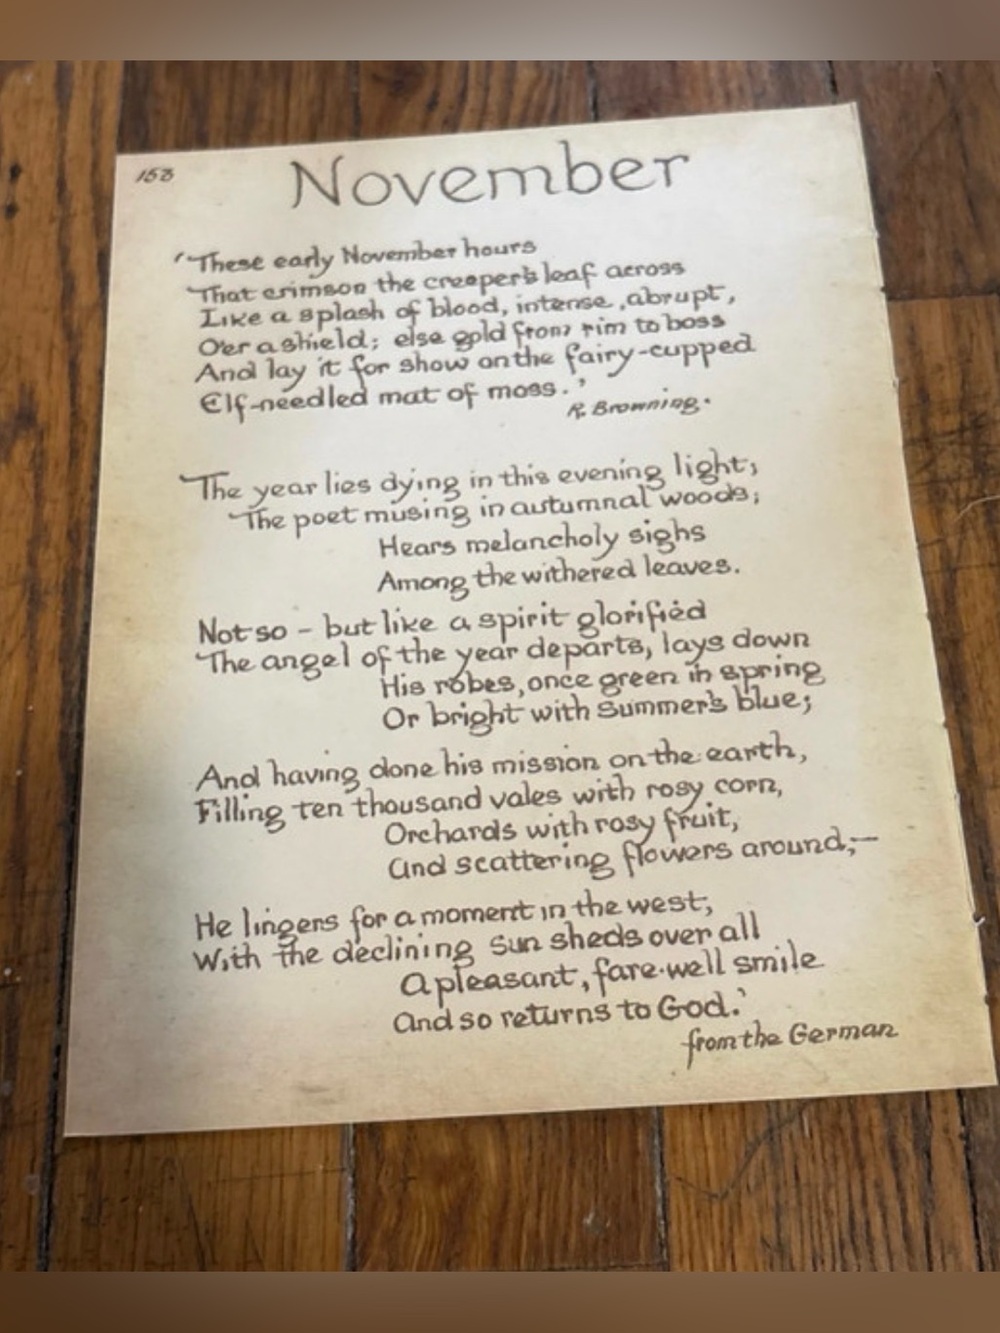 153
November
'These early November hours
That crimson the creeper's leaf across
Like a splash of blood, intense, abrupt,
O'er a shield; else gold from rim to boss
And lay it for show on the fairy-cupped
Elf-needled mat of moss.'
R. Browning.
The year lies dying in this evening light;
The poet musing in autumnal woods;
Hears melancholy sighs
Among the withered leaves.
Not so - but like a spirit glorified
The angel of the year departs, lays down
His robes, once green in spring
Or bright with summer's blue;
And having done his mission on the earth,
Filling ten thousand vales with rosy corn,
Orchards with rosy fruit,
And scattering flowers around;-
He lingers for a moment in the west;
With the declining sun sheds over all
A pleasant, fare-well smile
And so returns to God.'
from the German